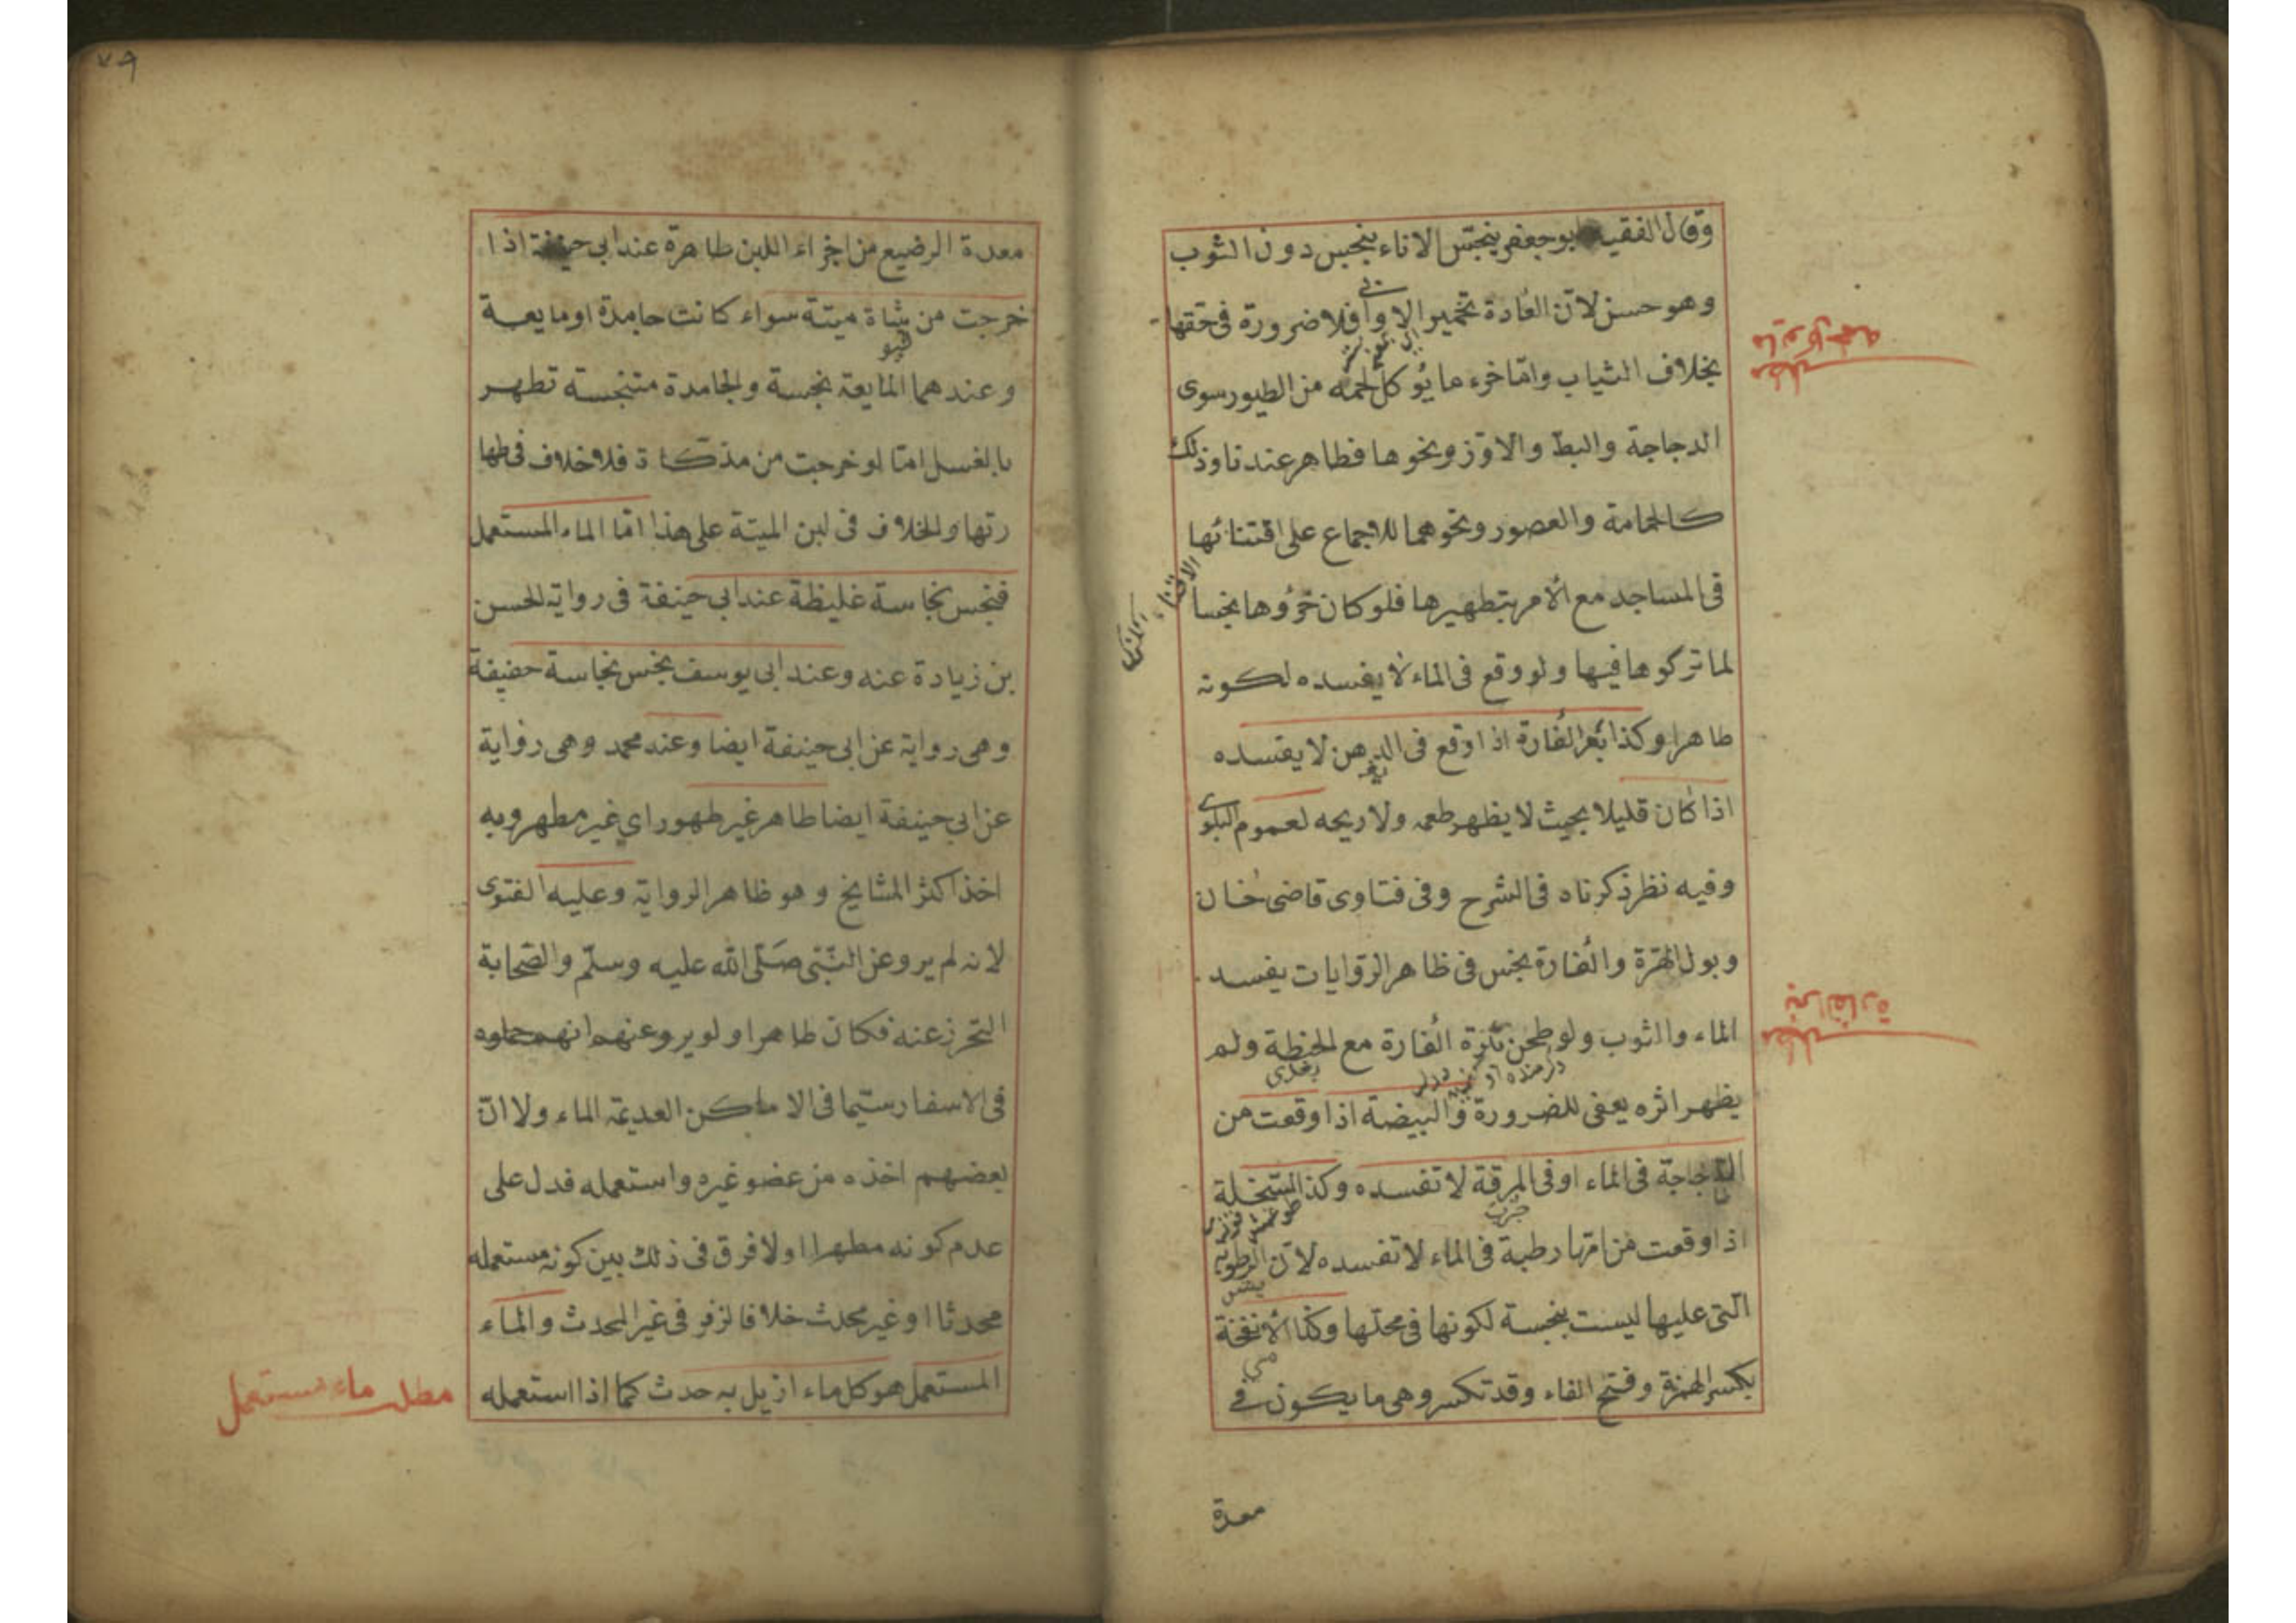 وقال الفقيه ابو جعفر ينجس الاناء ينجبس دون الثوب
وهو حسن لان العادة تخمير الاوانى فلا ضرورة فى حقها
بخلاف الثياب وامّا خرء ما يؤكل لحمه من الطيور سوى
الدجاجة والبطّ والاوّز ونحوها فطاهر عندنا وذلك
كالحمامة والعصور ونحوهما للاجماع على اقتنائها
فى المساجد مع الأمر بتطهيرها فلو كان خرؤها نجسا
لما تركوها فيها ولو وقع فى الماء لا يفسده لكونه
طاهرا وكذا بعر الفأرة اذا وقع فى الدهن لا يفسده
اذا كان قليلا بحيث لا يظهر طعمه ولا ريحه لعموم البلوى
وفيه نظر ذكرناه فى الشرح وفى فتاوى قاضى خان
وبول الهرّة والفأرة نجس فى ظاهر الرّوايات يفسد
الماء والثوب ولو طحن بعرة الفأرة مع الحنطة ولم
يظهر اثره يعفى للضرورة والبيضة اذا وقعت من
الدجاجة فى الماء او فى المرقة لا تفسده وكذا السّخلة
اذا وقعت من امّها رطبة فى الماء لا تفسده لانّ الرطوبة
التى عليها ليست بنجسة لكونها فى محلّها وكذا الأنفحة
بكسر الهمزة وفتح الفاء وقد تكسر وهى ما يكون فى
معدة
الاقتناء
٧٩
معدة الرضيع من اجزاء اللبن طاهرة عند ابى حنيفة اذا
خرجت من شاة ميتة سواء كانت جامدة او مايعة
وعندهما المايعة نجسة والجامدة متنجسة تطهر
بالغسل امّا لو خرجت من مذكّاة فلا خلاف فى طها
رتها والخلاف فى لبن الميتة على هذا امّا الماء المستعمل
فنجس نجاسة غليظة عند ابى حنيفة فى رواية الحسن
بن زيادة عنه وعند ابى يوسف نجس نجاسة خفيفة
وهى رواية عن ابى حنيفة ايضا وعند محمد وهى رواية
عن ابى حنيفة ايضا طاهر غير طهور اي غير مطهر وبه
اخذ اكثر المشايخ وهو ظاهر الرواية وعليه الفتوى
لانه لم يرو عن النّبى صَلّى الله عليه وسلّم والصّحابة
التحرز عنه فكان طاهرا ولو يرو عنهم انهم حملوه
فى الاسفار سيّما فى الاماكن العديمة الماء ولا انّ
بعضهم اخذه من عضو غيره واستعمله فدل على
عدم كونه مطهرا اولا فرق فى ذلك بين كونه مستعمله
محدثا او غير محدث خلافا لزفر فى غير المحدث والماء
المستعمل هو كل ماء ازيل به حدث كما اذا استعمله
مطلب ماء مستعمل